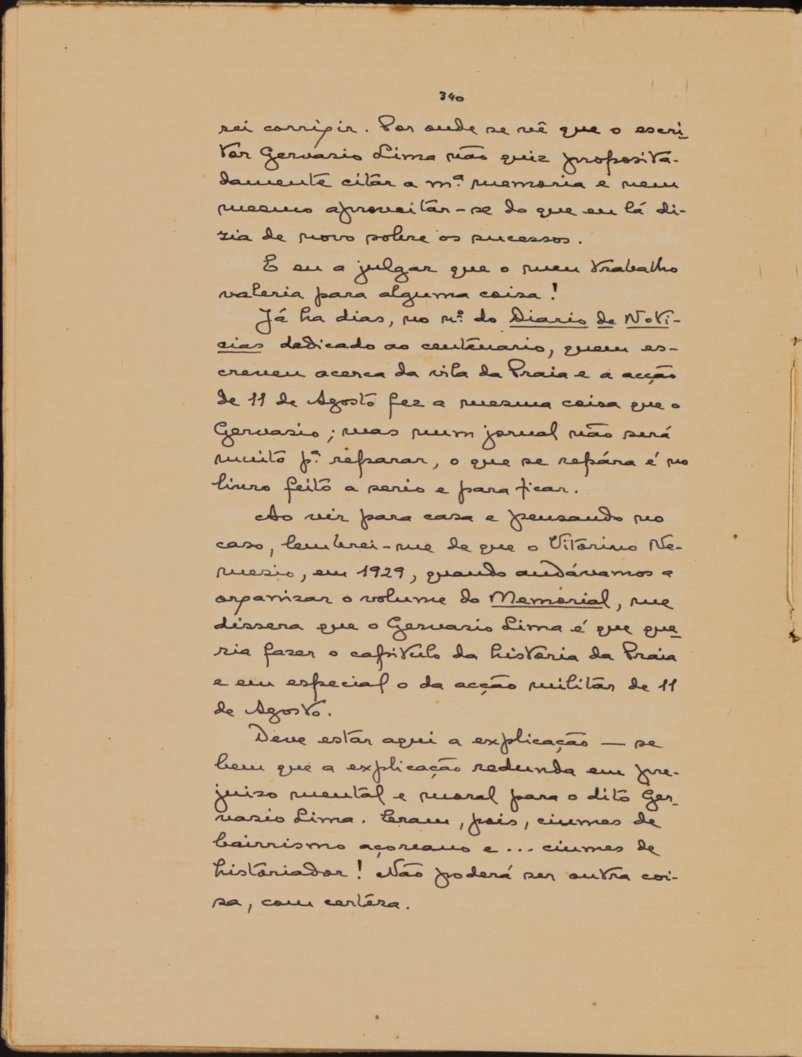 340
rei corrigir. Por onde se vê que o escri-
tor Gervasio Lima não quiz proposita-
damente citar a m.ª memoria e nem
mesmo aproveitar-se do que eu lá di-
zia de novo sobre os sucessos.
E eu a julgar que o meu trabalho
valeria para alguma coisa!
Já ha dias, no n.º do Diario de Noti-
cias dedicado ao centenario, quem es-
creveu acerca da vila da Praia e a acção
de 11 de Agosto fez a mesma coisa que o
Gervasio; mas num jornal não será
muito p.ª reparar, o que se repára é no
livro feito a serio e para ficar.
Ao vir para casa e pensando no
caso, lembrei-me de que o Vitorino Ne-
mesio, em 1929, quando andávamos a
organizar o volume do Memorial, me
dissera que o Gervasio Lima é que que-
ria fazer o capitulo da historia da Praia
e em especial o da acção militar de 11
de Agosto.
Deve estar aqui a explicação — se
bem que a explicação redunda em pre-
juizo mental e moral para o dito Ger-
vasio Lima. Eram, pois, ciumes de
bairrismo açoreano e ... ciumes de
historiador! Não poderá ser outra coi-
sa, com certêza.